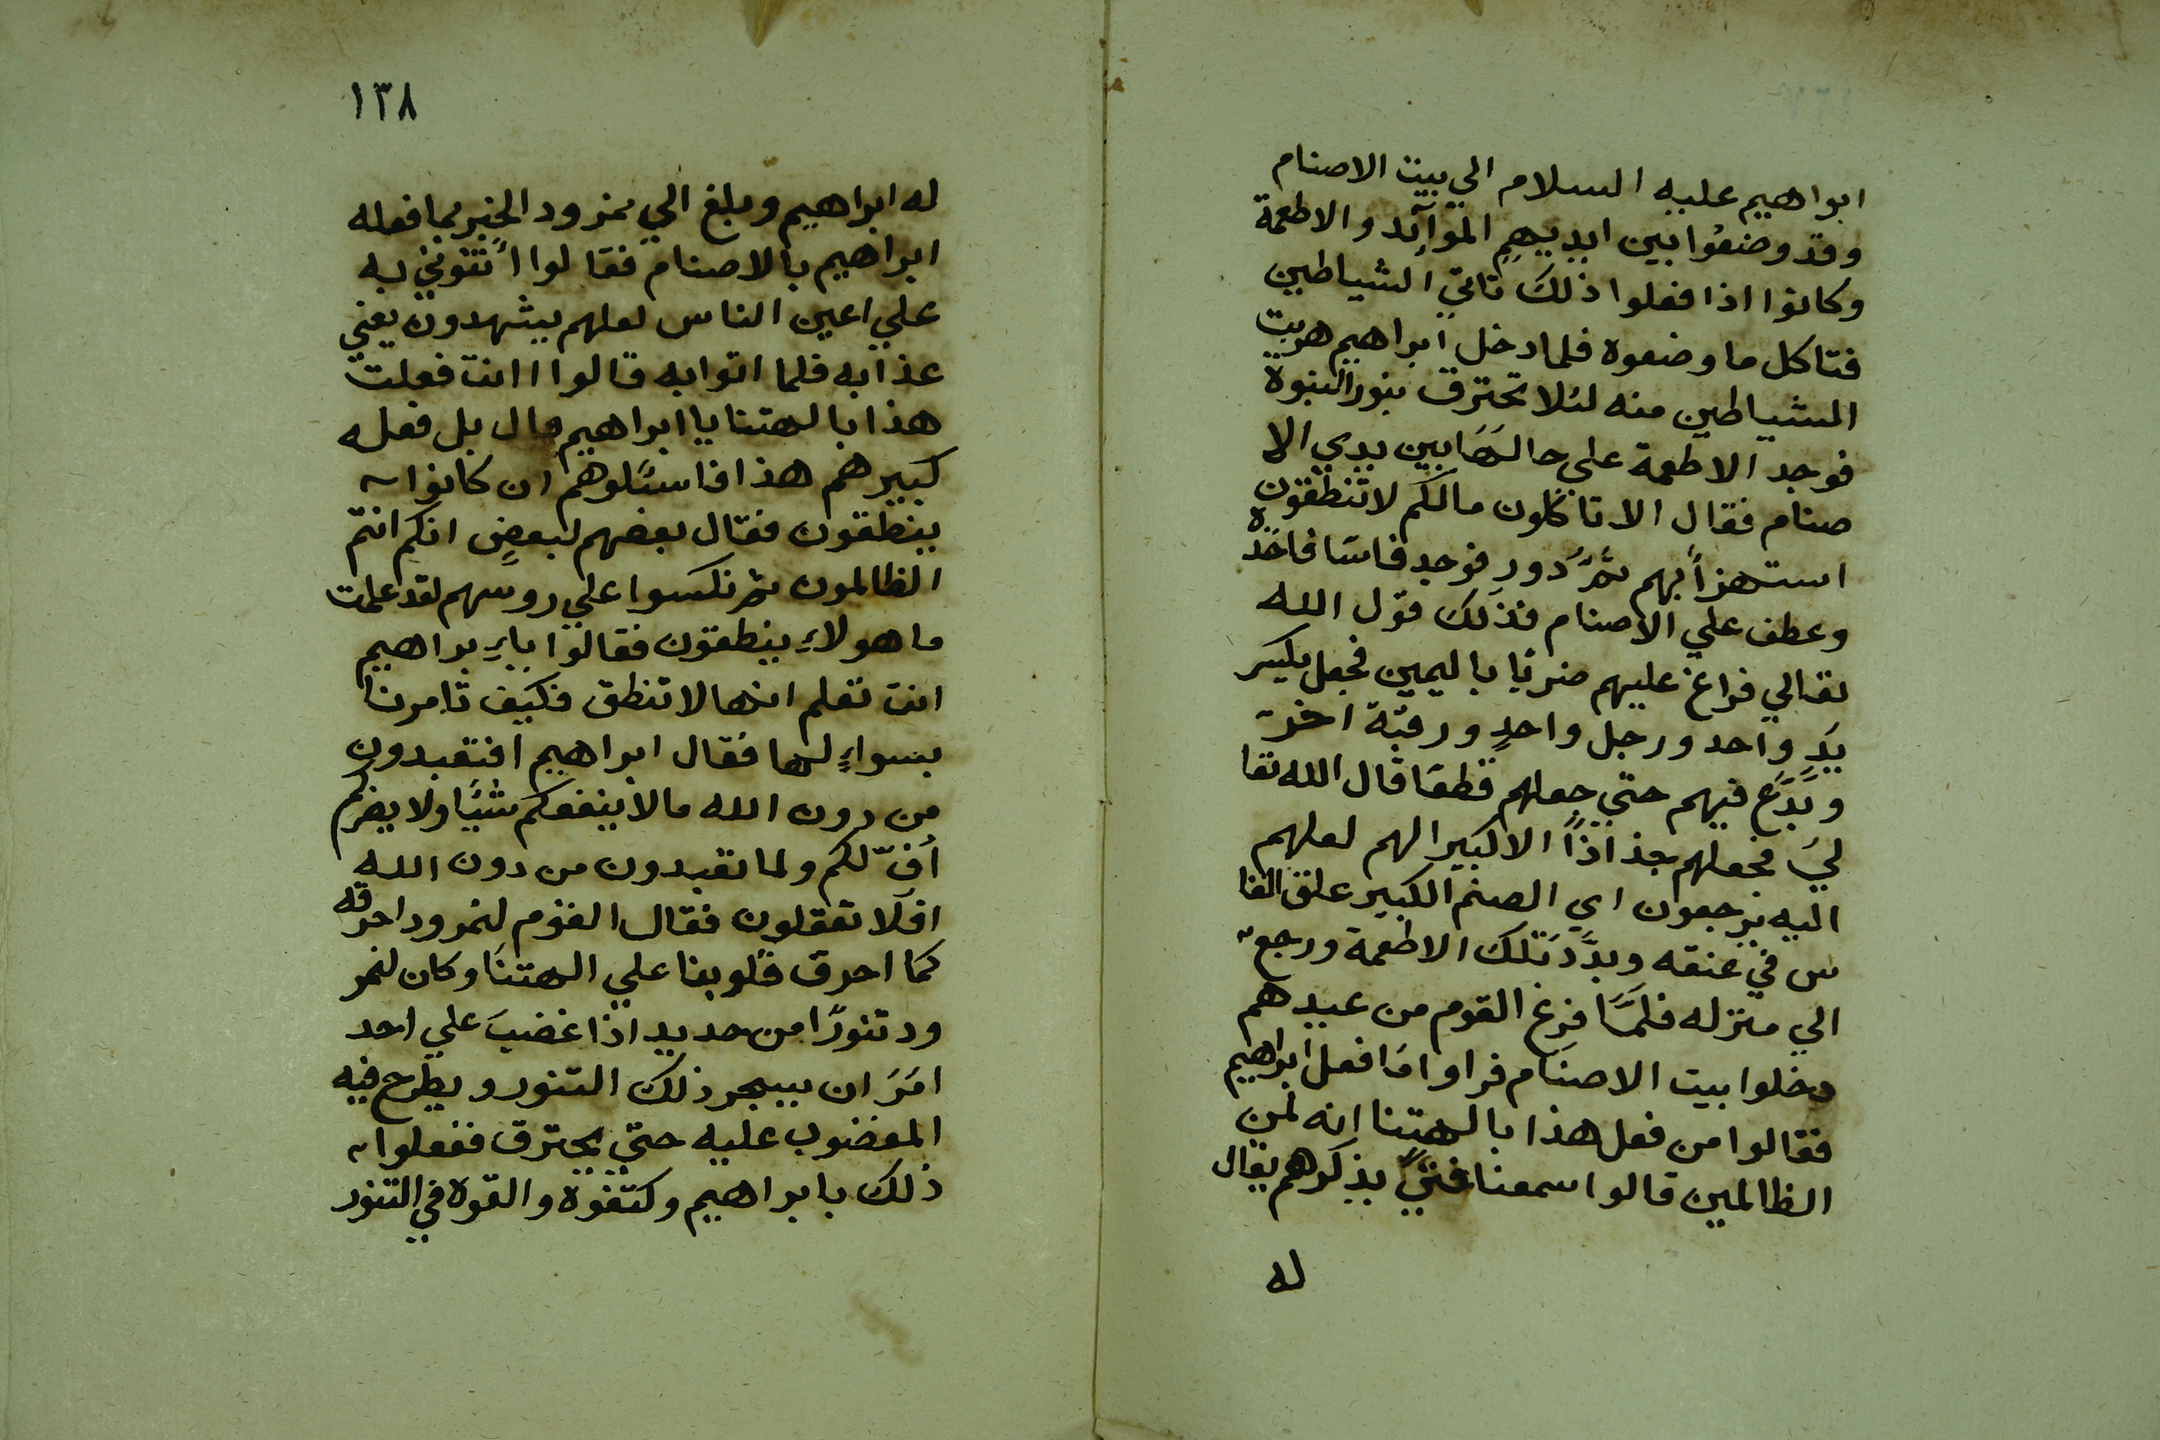 ابراهيم عليه السلام الي بيت الاصنام
وقد وضعوا بين ايديهم الموآئد والاطعمة
وكانوا اذا فعلوا ذلك تاتي الشياطين
فتاكل ما وضعوه فلما دخل ابراهيم هربت
الشياطين منه لئلا تحترق بنور النبوة
فوجد الاطعمة على حالها بين يدي الا
صنام فقال الا تاكلون مالكم لا تنطقون
استهزاً بهم ثمَّ دور فوجد فاسًا فاخذه
وعطف علي الاصنام فذلك قول الله
تعالي فراغ عليهم ضربًا باليمين فجعل يكسر
يدٍ واحد ورجل واحدٍ ورقبة اخر
وبَدَّع فيهم حتي جعلهم قطعًا قال الله تعا
ليَ فجعلهم جذاذاً الا كبيرا لهم لعلهم
اليه يرجعون اي الصنم الكبير علق الفا
س في عنقه وبدَّدَ تلك الاطعمة ورجع
الي منزله فلمَّا فرغ القوم من عيدهم
دخلوا بيت الاصنام فراوا مَا فعل ابراهيم
فقالوا من فعل هذا بالهتنا انه لمن
الظالمين قالوا سمعنا فتيً يذكرهم يقال
له
١٣٨
له ابراهيم وبلغ الي نمرود الخبر بما فعله
ابراهيم بالاصنام فقالوا أئتوني به
علي اعين الناس لعلهم يشهدون يعني
عذابه فلما اتوا به قالوا اانت فعلت
هذا بالهتنا يا ابراهيم قال بل فعله
كبيرهم هذا فاسئلوهم ان كانوا
ينطقون فقال بعضهم لبعضٍ انكم انتم
الظالمون ثم نكسوا علي روسهم لقد علمت
ما هولاءِ ينطقون فقالوا ياءِبراهيم
انت تعلم انها لا تنطق فكيف تامرنا
بسواءٍ لها فقال ابراهيم افتعبدون
من دون الله ما لا ينفعكم شيًا ولا يضركم
أفّ لكم ولما تعبدون من دون الله
افلا تعقلون فقال القوم لنمرود احرقه
كما احرق قلوبنا علي الهتنا وكان لنمر
ود تنورًا من حديد اذا غضبَ علي احد
امَرَ ان يسجر ذلك التنور ويطرح فيه
المغضوب عليه حتي يحترق ففعلوا
ذلك بابراهيم وكتفوة والقوه في التنور